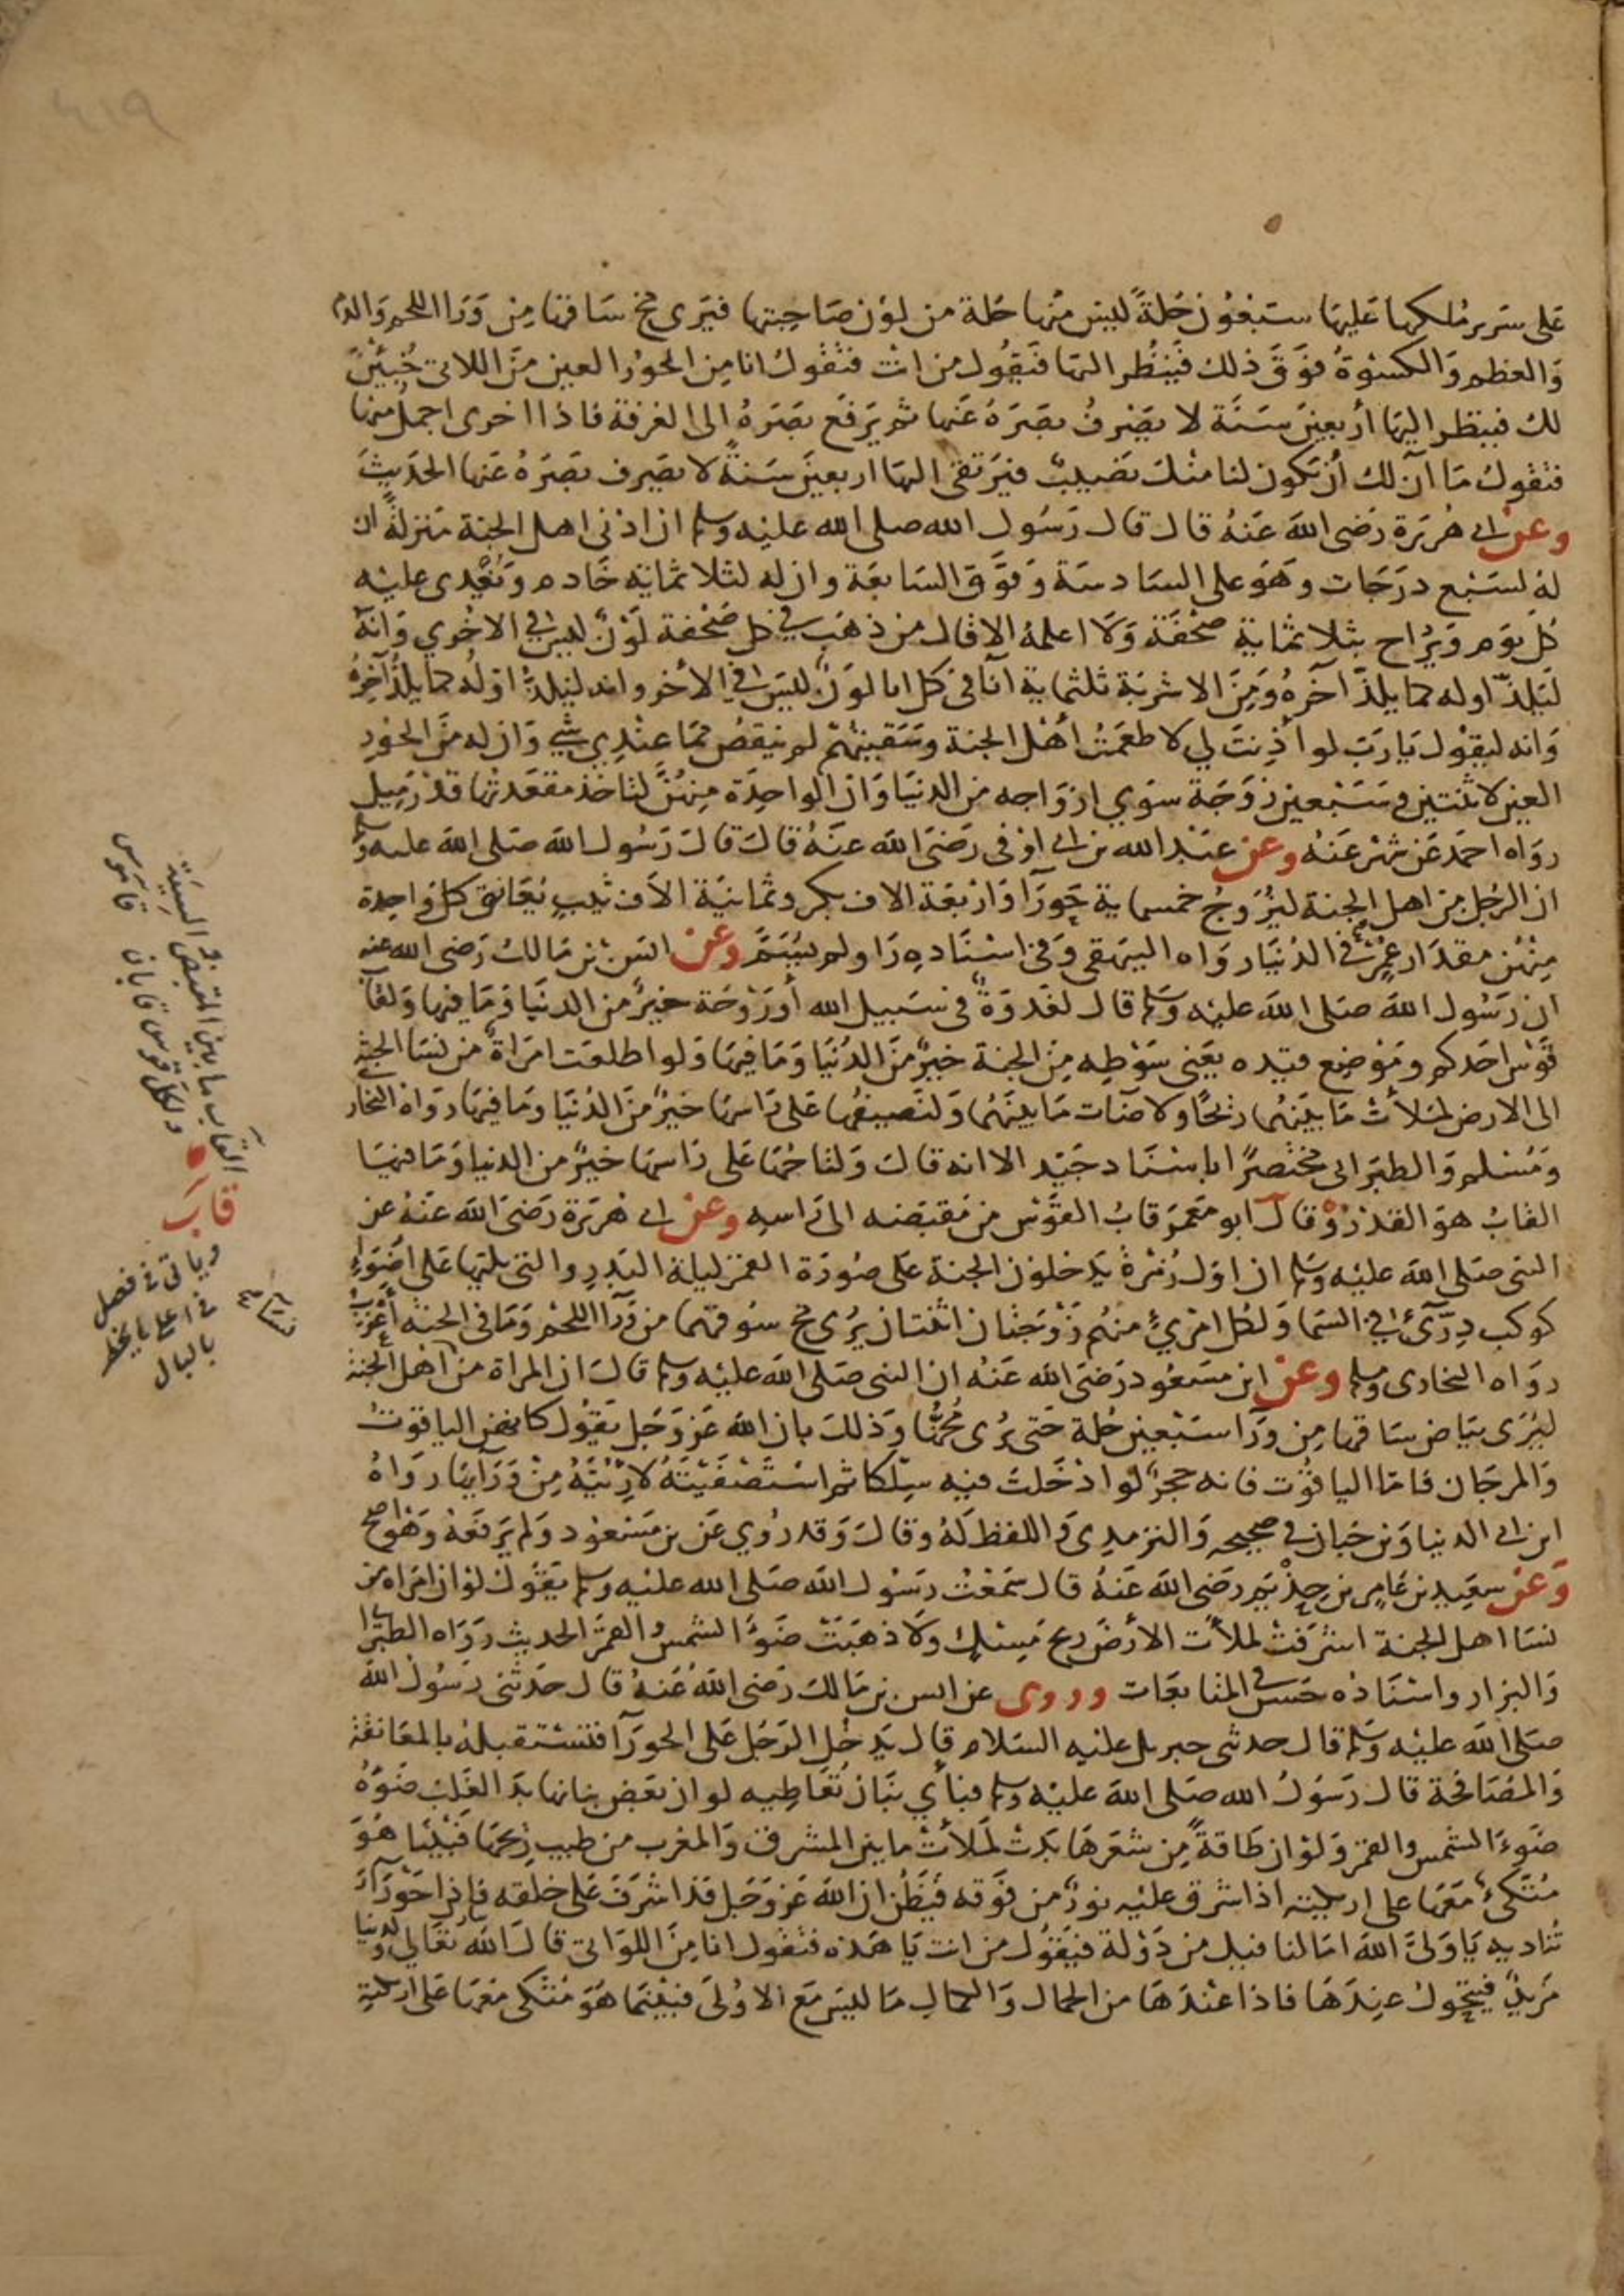 ٤١٩
على سرير ملكها عليها سبعون حلة ليس منها حلة من لون صاحبتها فيرى مخ ساقها من ورا اللحم والدم
والعظم والكسوة فوق ذلك فينظر اليها فيقول من انت فتقول انا من الحور العين من اللاتي خبين
لك فينظر اليها أربعين سنة لا يصرف بصره عنها ثم يرفع بصره الى الغرفة فاذا اخرى اجمل منها
فتقول ما آن لك أن يكون لنا منك نصيب فيرتقي اليها اربعين سنة لا يصرف بصره عنها الحديث
وعن ابي هريرة رضى الله عنه قال قال رسول الله صلى الله عليه وسلم ان ادنى اهل الجنة منزلة ان
له لسبع درجات وهو على السادسة وفوق السابعة وان له لثلاثماية خادم ويغدى عليه
كل يوم ويراح بثلاثماية صحفة ولا اعلمه الا قال من ذهب في كل صحفة لون ليس في الاخرى وانه
ليلذ اوله كما يلذ آخره ومن الاشربة ثلثماية انآ في كل انا لون ليس في الآخر وانه ليلذ اوله كما يلذ آخره
وانه ليقول يا رب لو أذنت لي لاطعمت أهل الجنة وسقيتهم لم ينقص مما عندي شي وان له من الحور
العين لاثنتين وسبعين زوجة سوى ازواجه من الدنيا وان الواحدة منهن لتاخذ مقعدتها قدر ميل
رواه احمد عن شهر عنه وعن عبد الله بن ابي اوفى رضى الله عنه قال قال رسول الله صلى الله عليه وسلم
ان الرجل من اهل الجنة ليزوج خمسماية حورآ واربعة الاف بكر وثمانية الاف ثيب يعانق كل واحدة
منهن مقدار عمره في الدنيا رواه البيهقي وفي اسناده راو لم يسم وعن انس بن مالك رضى الله عنه
ان رسول الله صلى الله عليه وسلم قال لغدوة في سبيل الله أو روحة خير من الدنيا وما فيها ولقاب
قوس احدكم وموضع قيده يعني سوطه من الجنة خير من الدنيا وما فيها ولو اطلعت امراة من نسا الجنة
الى الارض لملأت ما بينهما ريحا ولاضآت ما بينهما ولنصيفها على راسها خير من الدنيا وما فيها رواه البخاري
ومسلم والطبراني مختصرا باسناد جيد الا انه قال ولتاجها على راسها خير من الدنيا وما فيها
القاب هو القدر وقال ابو معمر قاب القوس من مقبضه الى راسه وعن ابي هريرة رضى الله عنه عن
النبى صلى الله عليه وسلم ان اول زمرة يدخلون الجنة على صورة القمر ليلة البدر والتي تليها على اضوء
كوكب درى في السما ولكل امرئ منهم زوجتان اثنتان يرى مخ سوقهما من ورآ اللحم وما في الجنة أعزب
رواه البخارى ومسلم وعن ابن مسعود رضى الله عنه ان النبى صلى الله عليه وسلم قال ان المراة من أهل الجنة
ليرى بياض ساقها من ورآ سبعين حلة حتى يرى مخها وذلك بان الله عز وجل يقول كانهن الياقوت
والمرجان فاما الياقوت فانه حجر لو ادخلت فيه سلكا ثم استصفيته لاريته من ورآيه رواه
ابن ابي الدنيا وبن حبان في صحيحه والترمدي واللفظ له وقال وقد روي عن بن مسعود ولم يرفعه وهو اصح
وعن سعيد بن عامر بن حذيم رضى الله عنه قال سمعت رسول الله صلى الله عليه وسلم يقول لو ان امراة من
نسا اهل الجنة اشرفت لملأت الأرض ريح مسك ولاذهبت ضوء الشمس والقمر الحديث رواه الطبراني
والبزار واسناده حسن في المتابعات وروى عن انس بن مالك رضى الله عنه قال حدثني رسول الله
صلى الله عليه وسلم قال حدثني جبريل عليه السلام قال يدخل الرجل على الحورآ فتستقبله بالمعانقة
والمصافحة قال رسول الله صلى الله عليه وسلم فبأي بنان تعاطيه لو ان بعض بنانها بدا لغلب ضوءه
ضوء الشمس والقمر ولو ان طاقة من شعرها بدت لملأت ما بين المشرق والمغرب من طيب ريحها فبينا هو
متكئ معها على اريكته اذا اشرق عليه نور من فوقه فيظن ان الله عز وجل قد اشرف على خلقه فاذا حورآء
تناديه يا ولى الله اما لنا فيك من دولة فيقول من انت يا هذه فتقول انا من اللواتى قال الله تعالى ولدينا
مزيد فيتحول عندها فاذا عندها من الجمال والكمال ما ليس مع الاولى فبينما هو متكى معها على اريكته
القاب ما بين المقبض والسية
ولكل قوس قابان قاموس
قاب
وياتى في فصل
في اعلى ما يخطر
بالبال